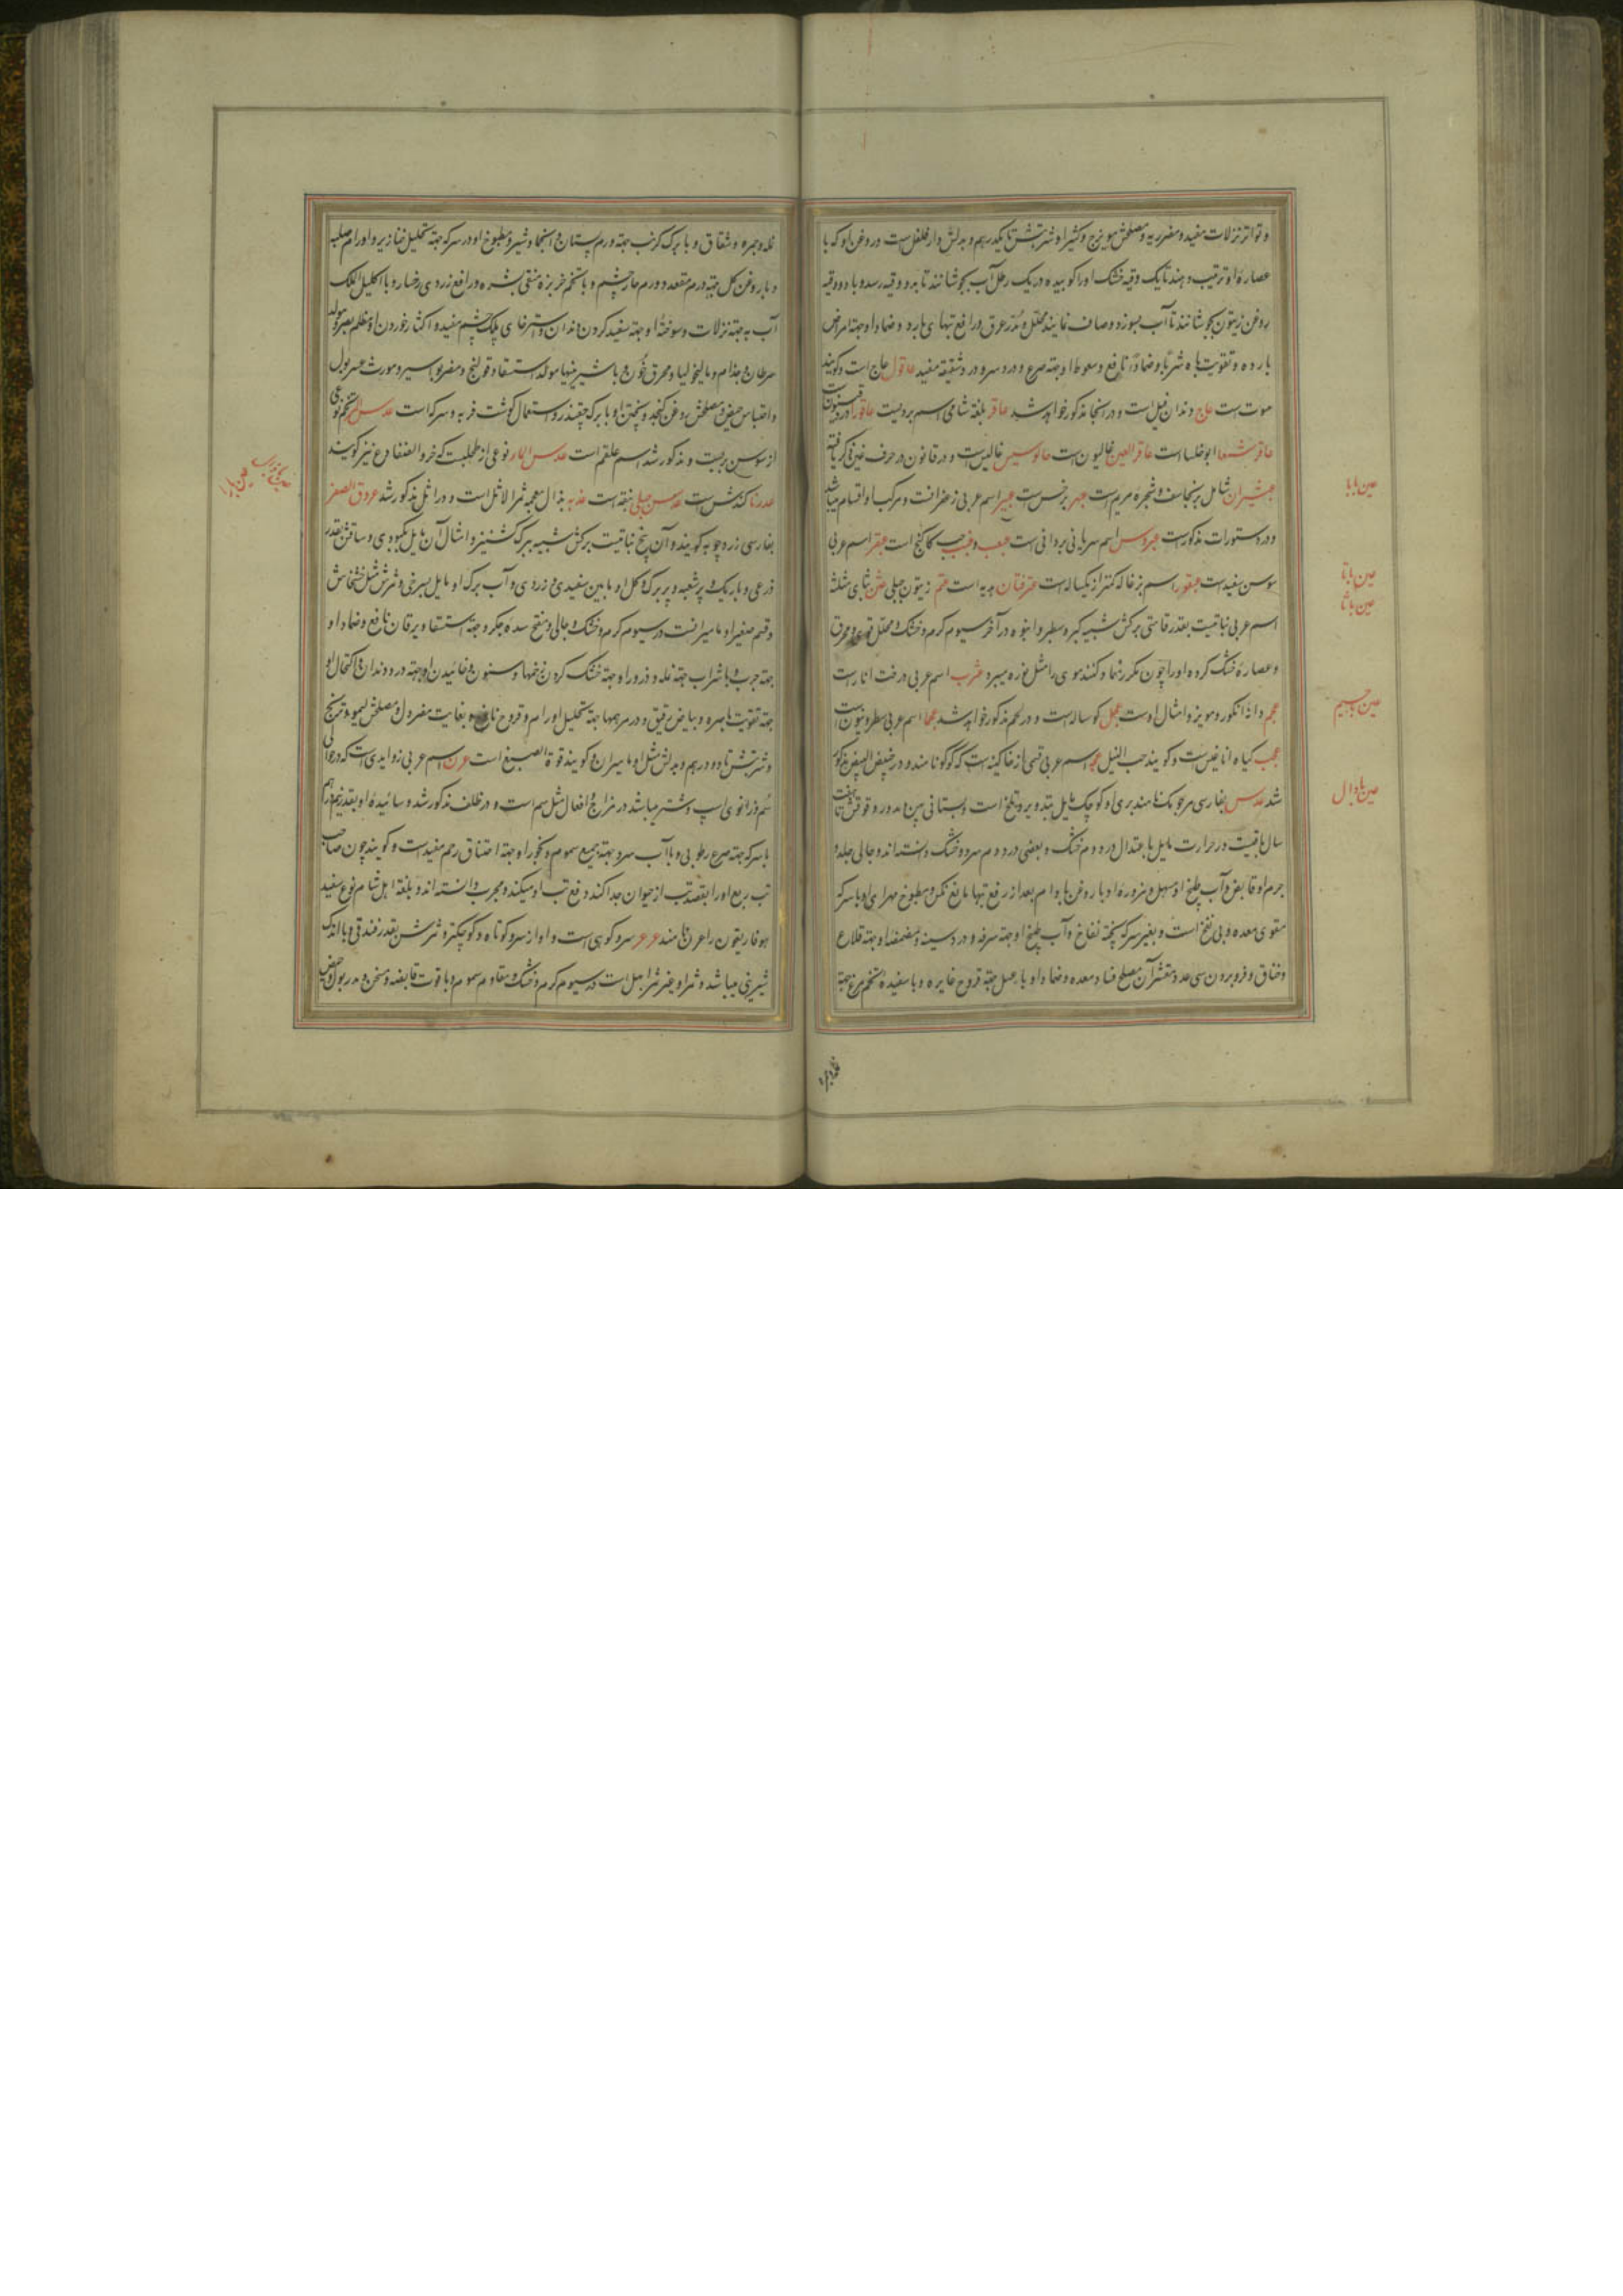 و تواتر نزلات مفید و مضر ریه و مصلحش مویزج و کثیرا و شربتش تا یکدرهم و بدلش دار فلفل است و روغن او که با
عصاره او ترتیب دهند تا یک وقیه خشک او را کوبیده در یک رطل آب بجوشانند تا به دو وقیه رسد و با دو وقیه
روغن زیتون بجوشانند تا آب بسوزد و صاف نمایند محلل و مدر عرق و رافع تبهای بارد و ضماد او جهة امراض
بارده و تقویت باه شربا و ضمادا نافع و سعوط او جهة صرع و درد سر و درد شقیقه مفید عاقول حاج است و گویند
موت است عاج دندان فیل است و در انجا مذکور خواهد شد عاقر بلغة شامی اسم بردیست عاقور
عاقر شمعا ابو خلسا است عاقر العین غالیون است عالوسیس غالیس است و در قانون در حرف غین ذکر یافته
عبیثران شامل برنجاسف و شجره مریم است عبهر نرجس است عبیر اسم عربی زعفرانست و مرکب او اقسام میباشد
و در دستورات مذکور است عبروس اسم سریانی بردانی است عبب و عنب حب کاکنج است عبقر اسم عربی
سوسن سفید است عبقور اسم بزغاله کمتر از یکساله است عترفان هدیه است عتم زیتون جبلی عثن بثای مثلثه
اسم عربی نباتیست بقدر قامتی برکش شبیه کبر و سطبر و انبوه در آخر سیوم گرم و خشک و محلل قوی و محرق
و عصاره خشک کرده او را چون مکرر نماد کنند موی را مثل نوره میبرد عثرب اسم عربی درخت انار است
عجم دانه انگور و مویز و امثال اوست عجل کوساله است و در لحم مذکور خواهد شد عجما اسم عربی سطرونیون است
عجب کیاه اناغیس است و گویند حب النیل عجه اسم عربی قسمی از خاگینه است که کوکو نامند و در خبیص البیض مذکور
شد عدس بفارسی مرجومک نامند بری او کوچک مایل بتدویر و تلخ است و بستانی پهن مدور و قوتش تا هفت
سال باقیست در حرارت مایل باعتدال در دوم خشک و بعضی در دوم سرد و خشک دانسته اند و جالی جلد و
جرم او قابض و آب طبیخ او مسهل و مزوره او با روغن بادام بعد از رفع تبها مانع نکس و مطبوخ مهرای او با سرکه
مقوی معده و بی نفخ است و بغیر سرکه پخته نفاخ و آب طبیخ او جهة سرفه و درد سینه و مضمضه او جهة قلاع
و خناق و فرو بردن سی عدد مقشر آن مصلح فساد معده و ضماد او با عسل جهة قروح غایره و با سفیده تخم مرغ جهة
عین با با
عین با تا
عین با ثا
عین با جیم
عین با دال
نمله و جمره و شقاق و با برک کرنب جهة ورم پستان و انجماد شیر و مطبوخ او در سرکه جهة تحلیل خنازیر و اورام صلبه
و با روغن کل جهة ورم مقعد و ورم حار چشم و با تخم خربزه منقی بشره و رافع زردی رخسار و با اکلیل الملک
آب به جهة نزلات و سوخته او جهة سفید کردن دندان و استرخای پلک چشم مفید و اکثار خوردن او مظلم بصر و مولد
سرطان و جذام و مالیخولیا و محرق خون و با شیرینیها مولد استسقا و قولنج و مضر بواسیر و مورث عسر بول
و احتباس حیض و مصلحش روغن کنجد و پختن او با برک چقندر و استعمال گوشت فربه و سرکه است عدس المر تخم نوعی
از سوسن بریست و مذکور شد اسم علقم است عدس الماء نوعی از طحلبست که خرو الضفادع نیز گویند
عدرنا کندش است عدس جبلی بنفقه است عذبه بذال معجمه ثمر الاثل است و در اثل مذکور شد عروق الصفر
بفارسی زردچوبه گویند و آن بیخ نباتیست برکش شبیه ببرک گشنیز و امثال آن مایل بکبودی و ساقش بقدر
ذرعی و باریک و پر شعبه و پر برک و کل او مابین سفیدی و زردی و آب برک او مایل بسرخی و ثمرش مثل خشخاش
و قسم صغیر او مامیرانست در سیوم گرم و خشک و جالی و مفتح سده جگر و جهة استسقا و یرقان نافع و ضماد او
جهة جرب و با شراب جهة نمله و ذرور او جهة خشک کردن زخمها و سنون و خائیدن او جهة درد دندان و اکتحال او
جهة تقویت باصره و بیاض رقیق و در مرهمها جهة تحلیل اورام و قروح نافع و بغایت مضر دل و مصلحش لیمو و ترنج
و شربتش تا دو درهم و بدلش مثل او مامیران و گویند قوة الصبغ است عرن اسم عربی زوایدی است که در حوالی
سم و زانوی اسپ و شتر میباشد در مزاج و افعال مثل سم است و در ظلف مذکور شد و سائیده او بقدر نیم درهم
با سرکه جهة صرع رطوبی و با آب سرد جهة جمیع سموم و بخور او جهة اختناق رحم مفید است و گویند چون صاحب
تب ربع او را بقصد تب از حیوان جدا کند دفع تب او میکند و مجرب دانسته اند و بلغة اهل شام نوع سفید
هوفاریقون را عرن نامند عرعر سرو کوهی است و او از سرو کوتاه و کوچکتر و ثمرش بقدر فندقی و با اندک
شیرینی میباشد و ثمر او غیر ثمر ابهل است در سیوم گرم و خشک و مقاوم سموم و با قوت قابضه و مسخن و مدر بول و حیض
عین با را